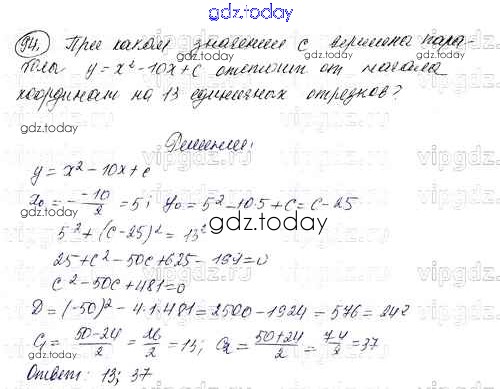 gdz.today
94. При каком значении с вершина пара-
болы y = x² - 10x + c отстоит от начала
gdz.today
координат на 13 единичных отрезков?
gdz.today
Решение:
y = x² - 10x + c
x₀ = - -10/2 = 5; y₀ = 5² - 10·5 + c = c - 25
gdz.today
5² + (c - 25)² = 13²
25 + c² - 50c + 625 - 169 = 0
c² - 50c + 481 = 0
gdz.today
D = (-50)² - 4·1·481 = 2500 - 1924 = 576 = 24²
c₁ = 50-24/2 = 26/2 = 13; c₂ = 50+24/2 = 74/2 = 37
Ответ: 13; 37
gdz.today